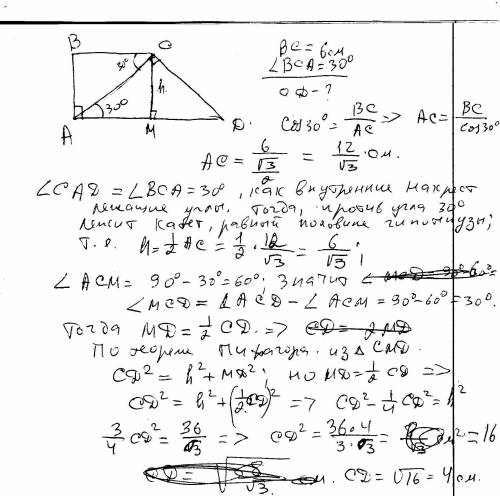 B C BC = 6см
30° ∠BCA = 30°
h. CD - ?
30°
A M D. Cos30° = BC/AC => AC = BC/cos30°
AC = 6/(√3/2) = 12/√3 см.
∠CAD = ∠BCA = 30°, как внутренние накрест
лежащие углы. Тогда, против угла 30°
лежит катет, равный половине гипотенузы,
т.е. h = 1/2 AC = 1/2 · 12/√3 = 6/√3;
∠ACM = 90° - 30° = 60°, значит
∠MCD = ∠ACD - ∠ACM = 90° - 60° = 30°.
Тогда MD = 1/2 CD. =>
По теореме Пифагора из △CMD.
CD² = h² + MD²; но MD = 1/2 CD =>
CD² = h² + (1/2 CD)² => CD² - 1/4 CD² = h²
3/4 CD² = 36/√3 => CD² = 36·4/3·√3 = = 16
см. CD = √16 = 4 см.